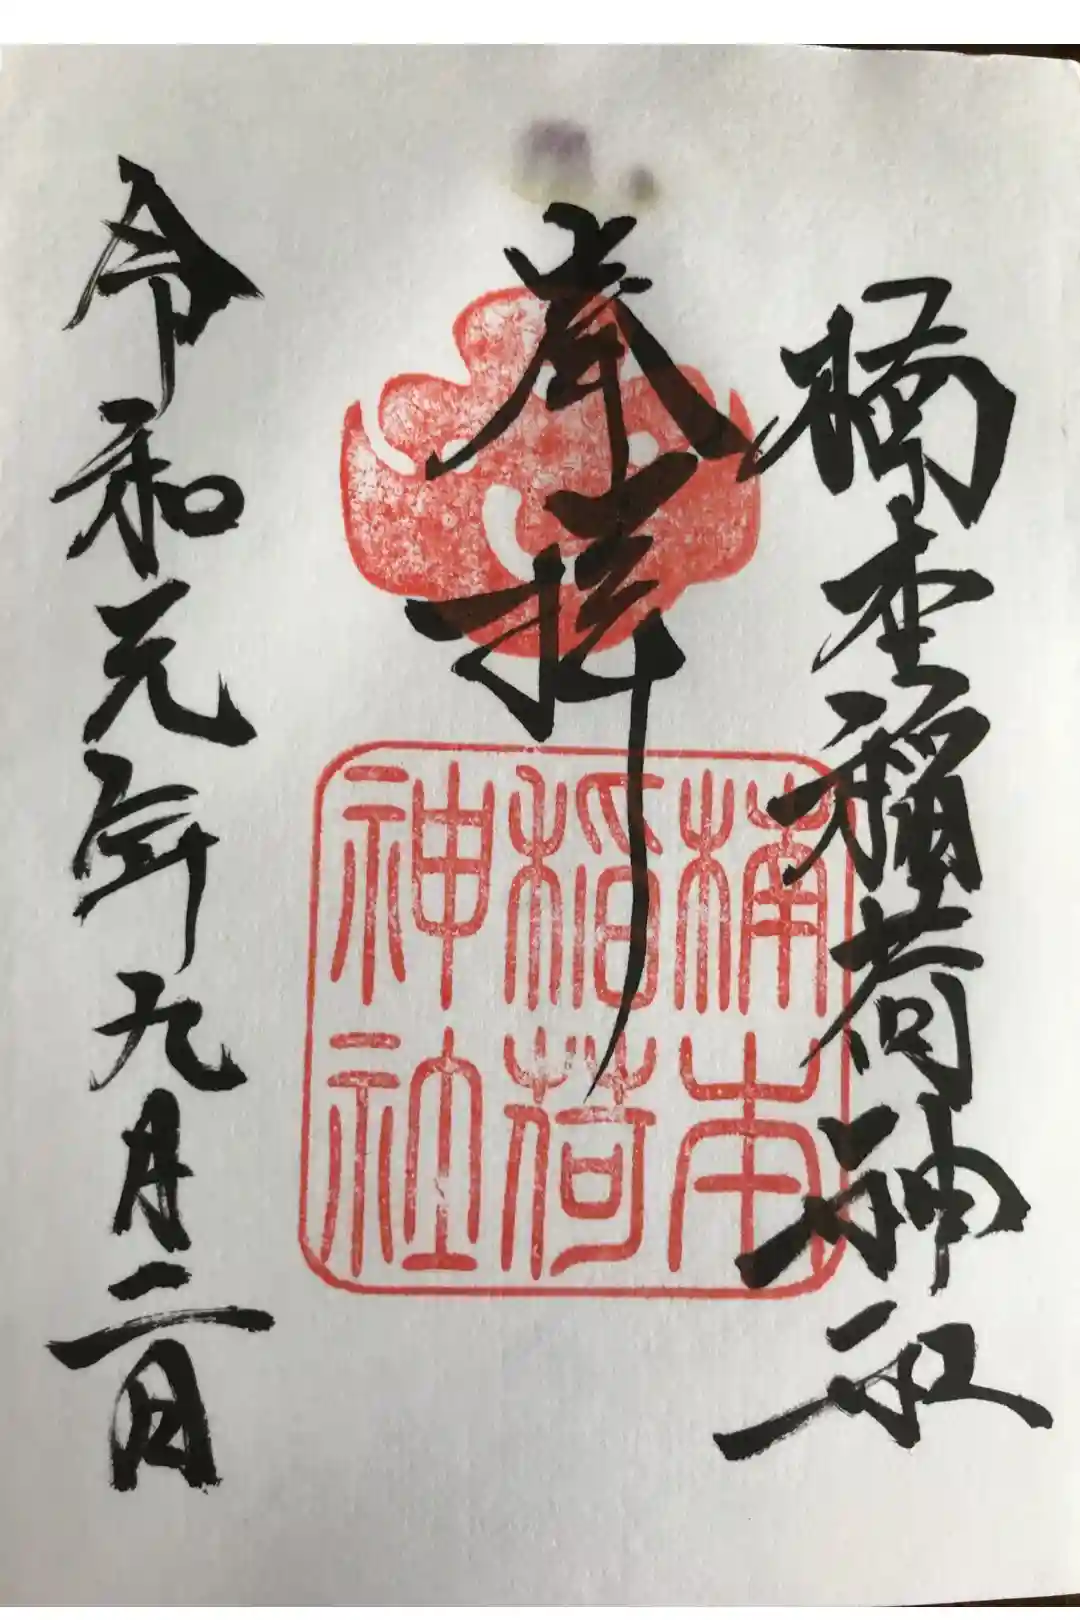 楠本稲荷神社
奉拝
令和元年九月二日
楠本
稲荷
神社